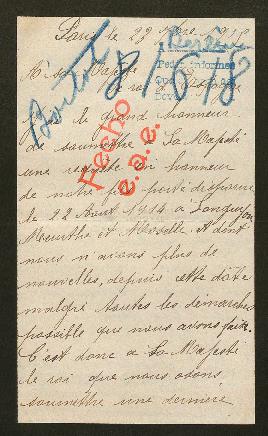 Paris le 22 1918
Pedir informes
8/6/18
A sa Majesté
le roi d'Espagne
Hecho
e.a.e.
j'ai le grand honneur
de soumettre à Sa Majesté
une requête en honneur
de notre fils porté disparu
le 22 Août 1914 à Longuyon
Meurthe et Moselle. Et dont
nous n'avons plus de
nouvelles, depuis cette date
malgré toutes les démarches
possible que nous avons faite.
C'est donc a Sa Majesté
le roi que nous osons
soumettre une dernière